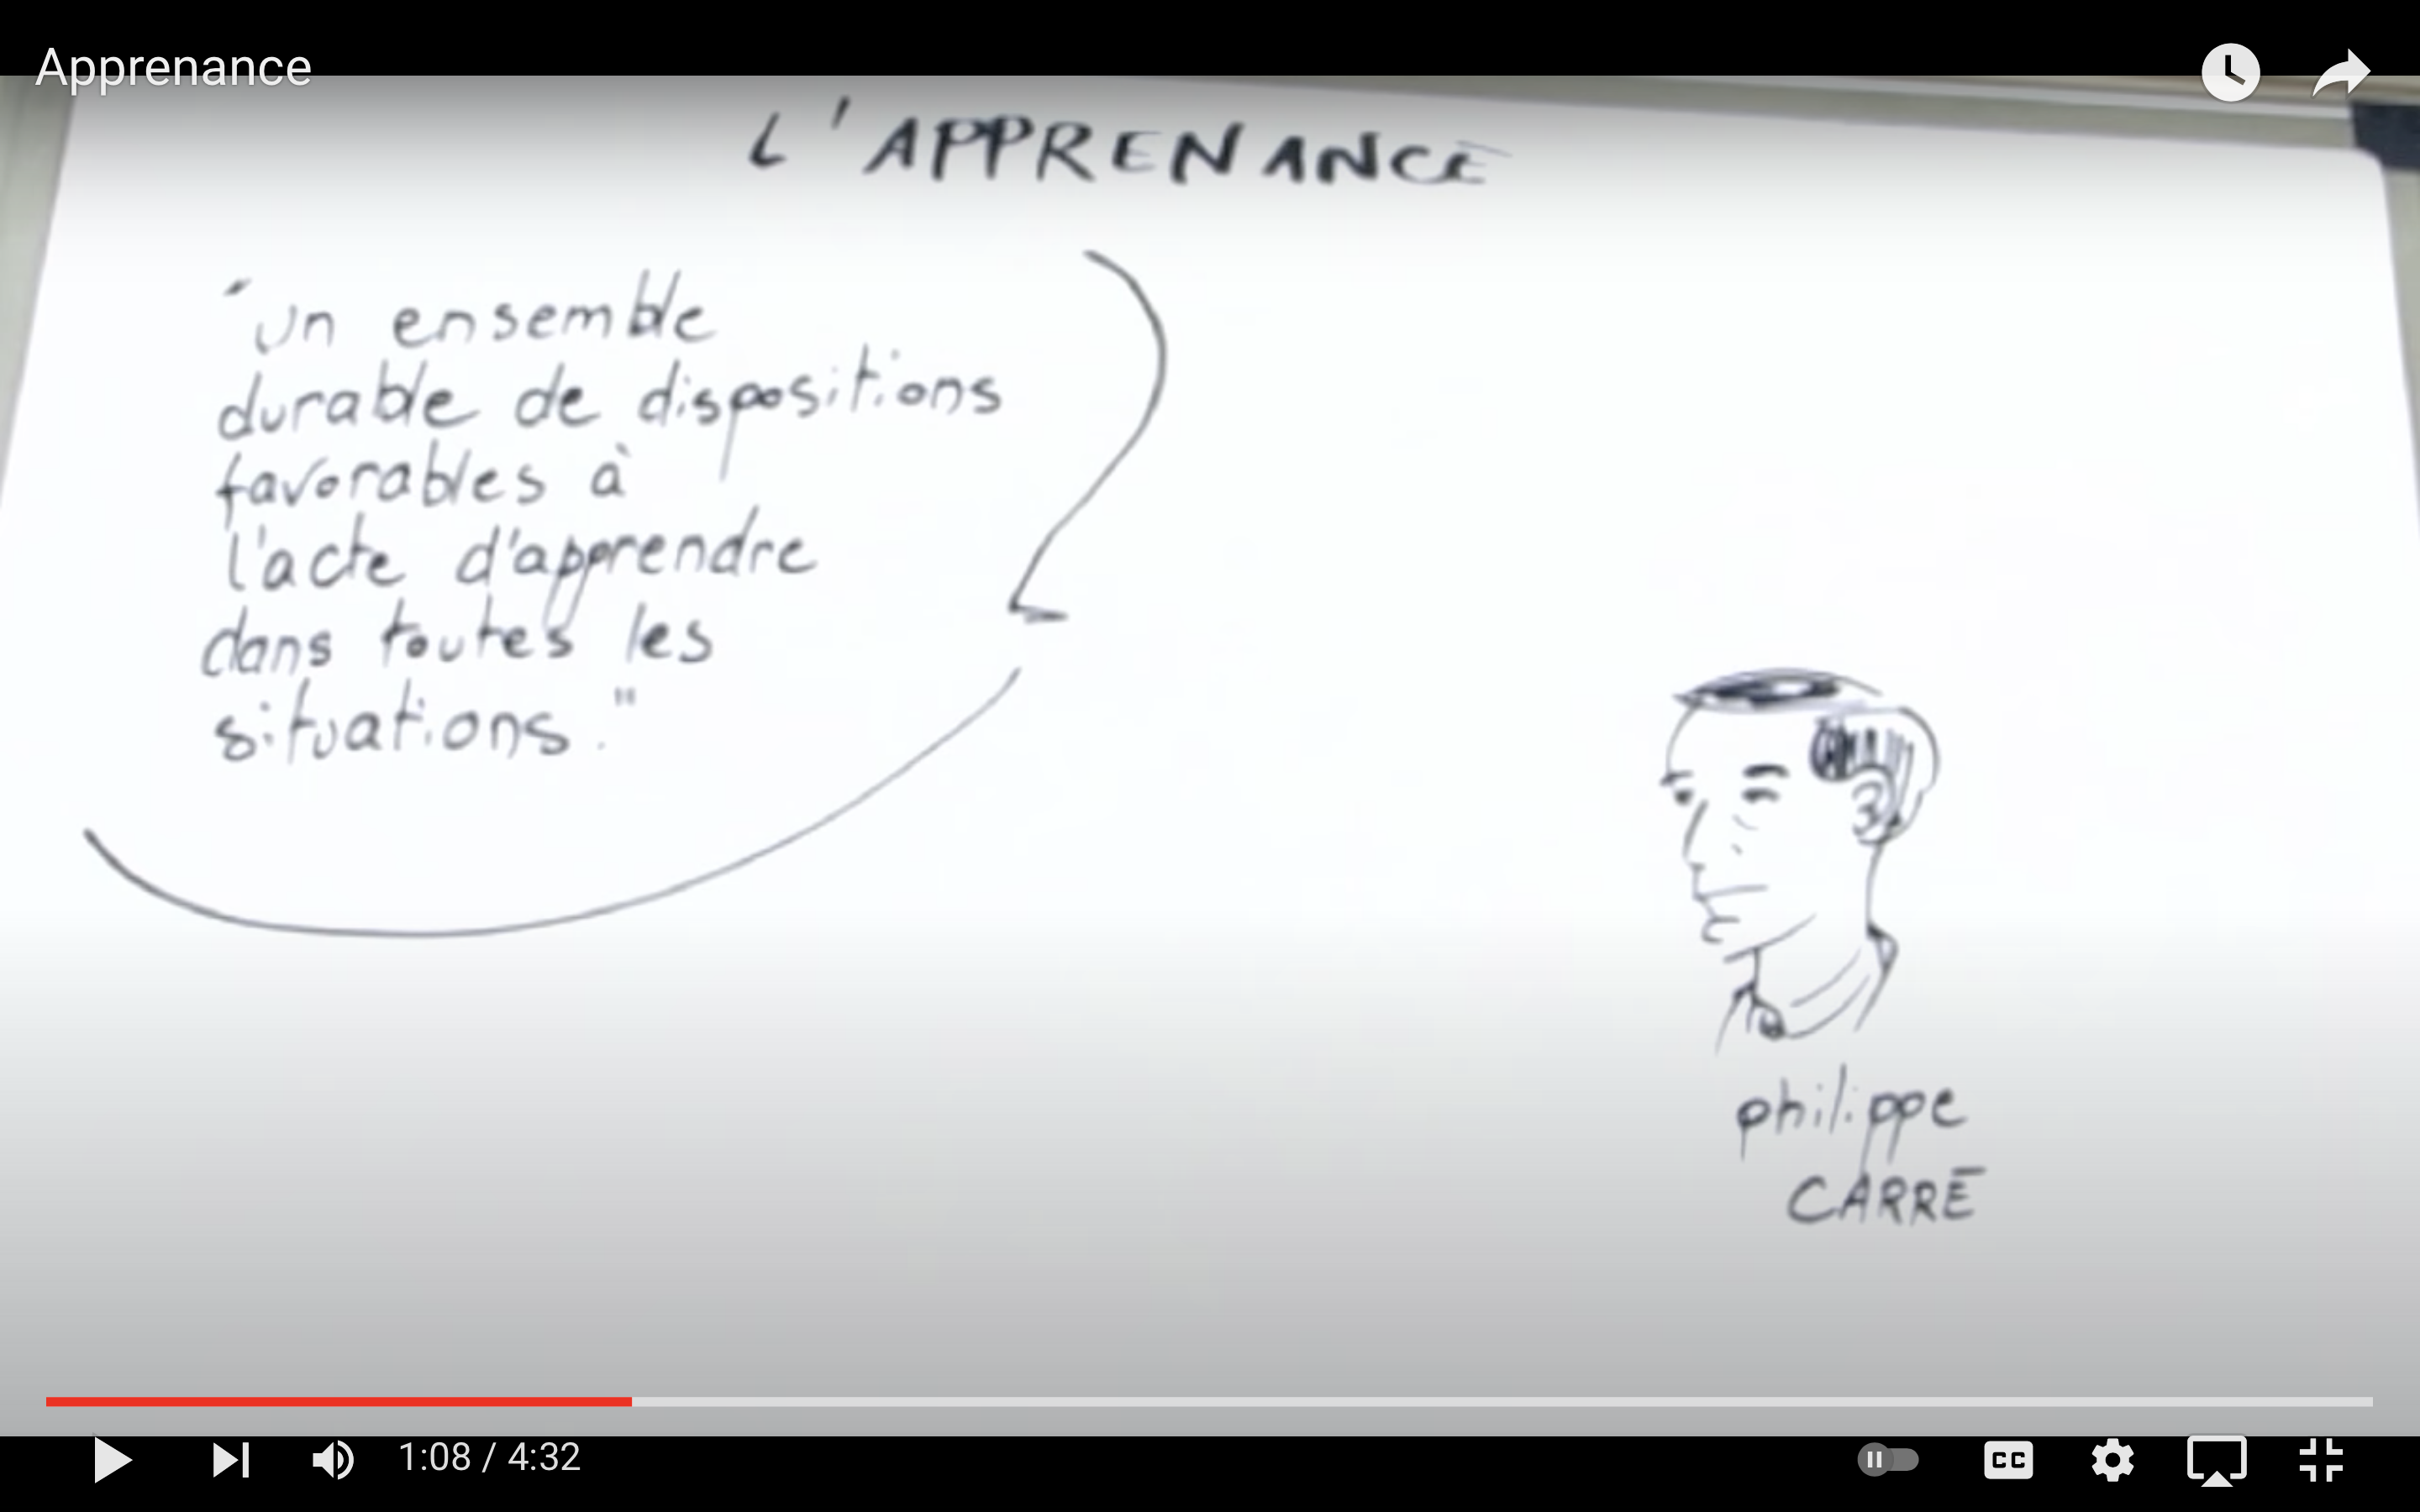 Apprenance
L'APPRENANCE
"un ensemble
durable de dispositions
favorables à
l'acte d'apprendre
dans toutes les
situations."
philippe
CARRÉ
1:08 / 4:32
CC